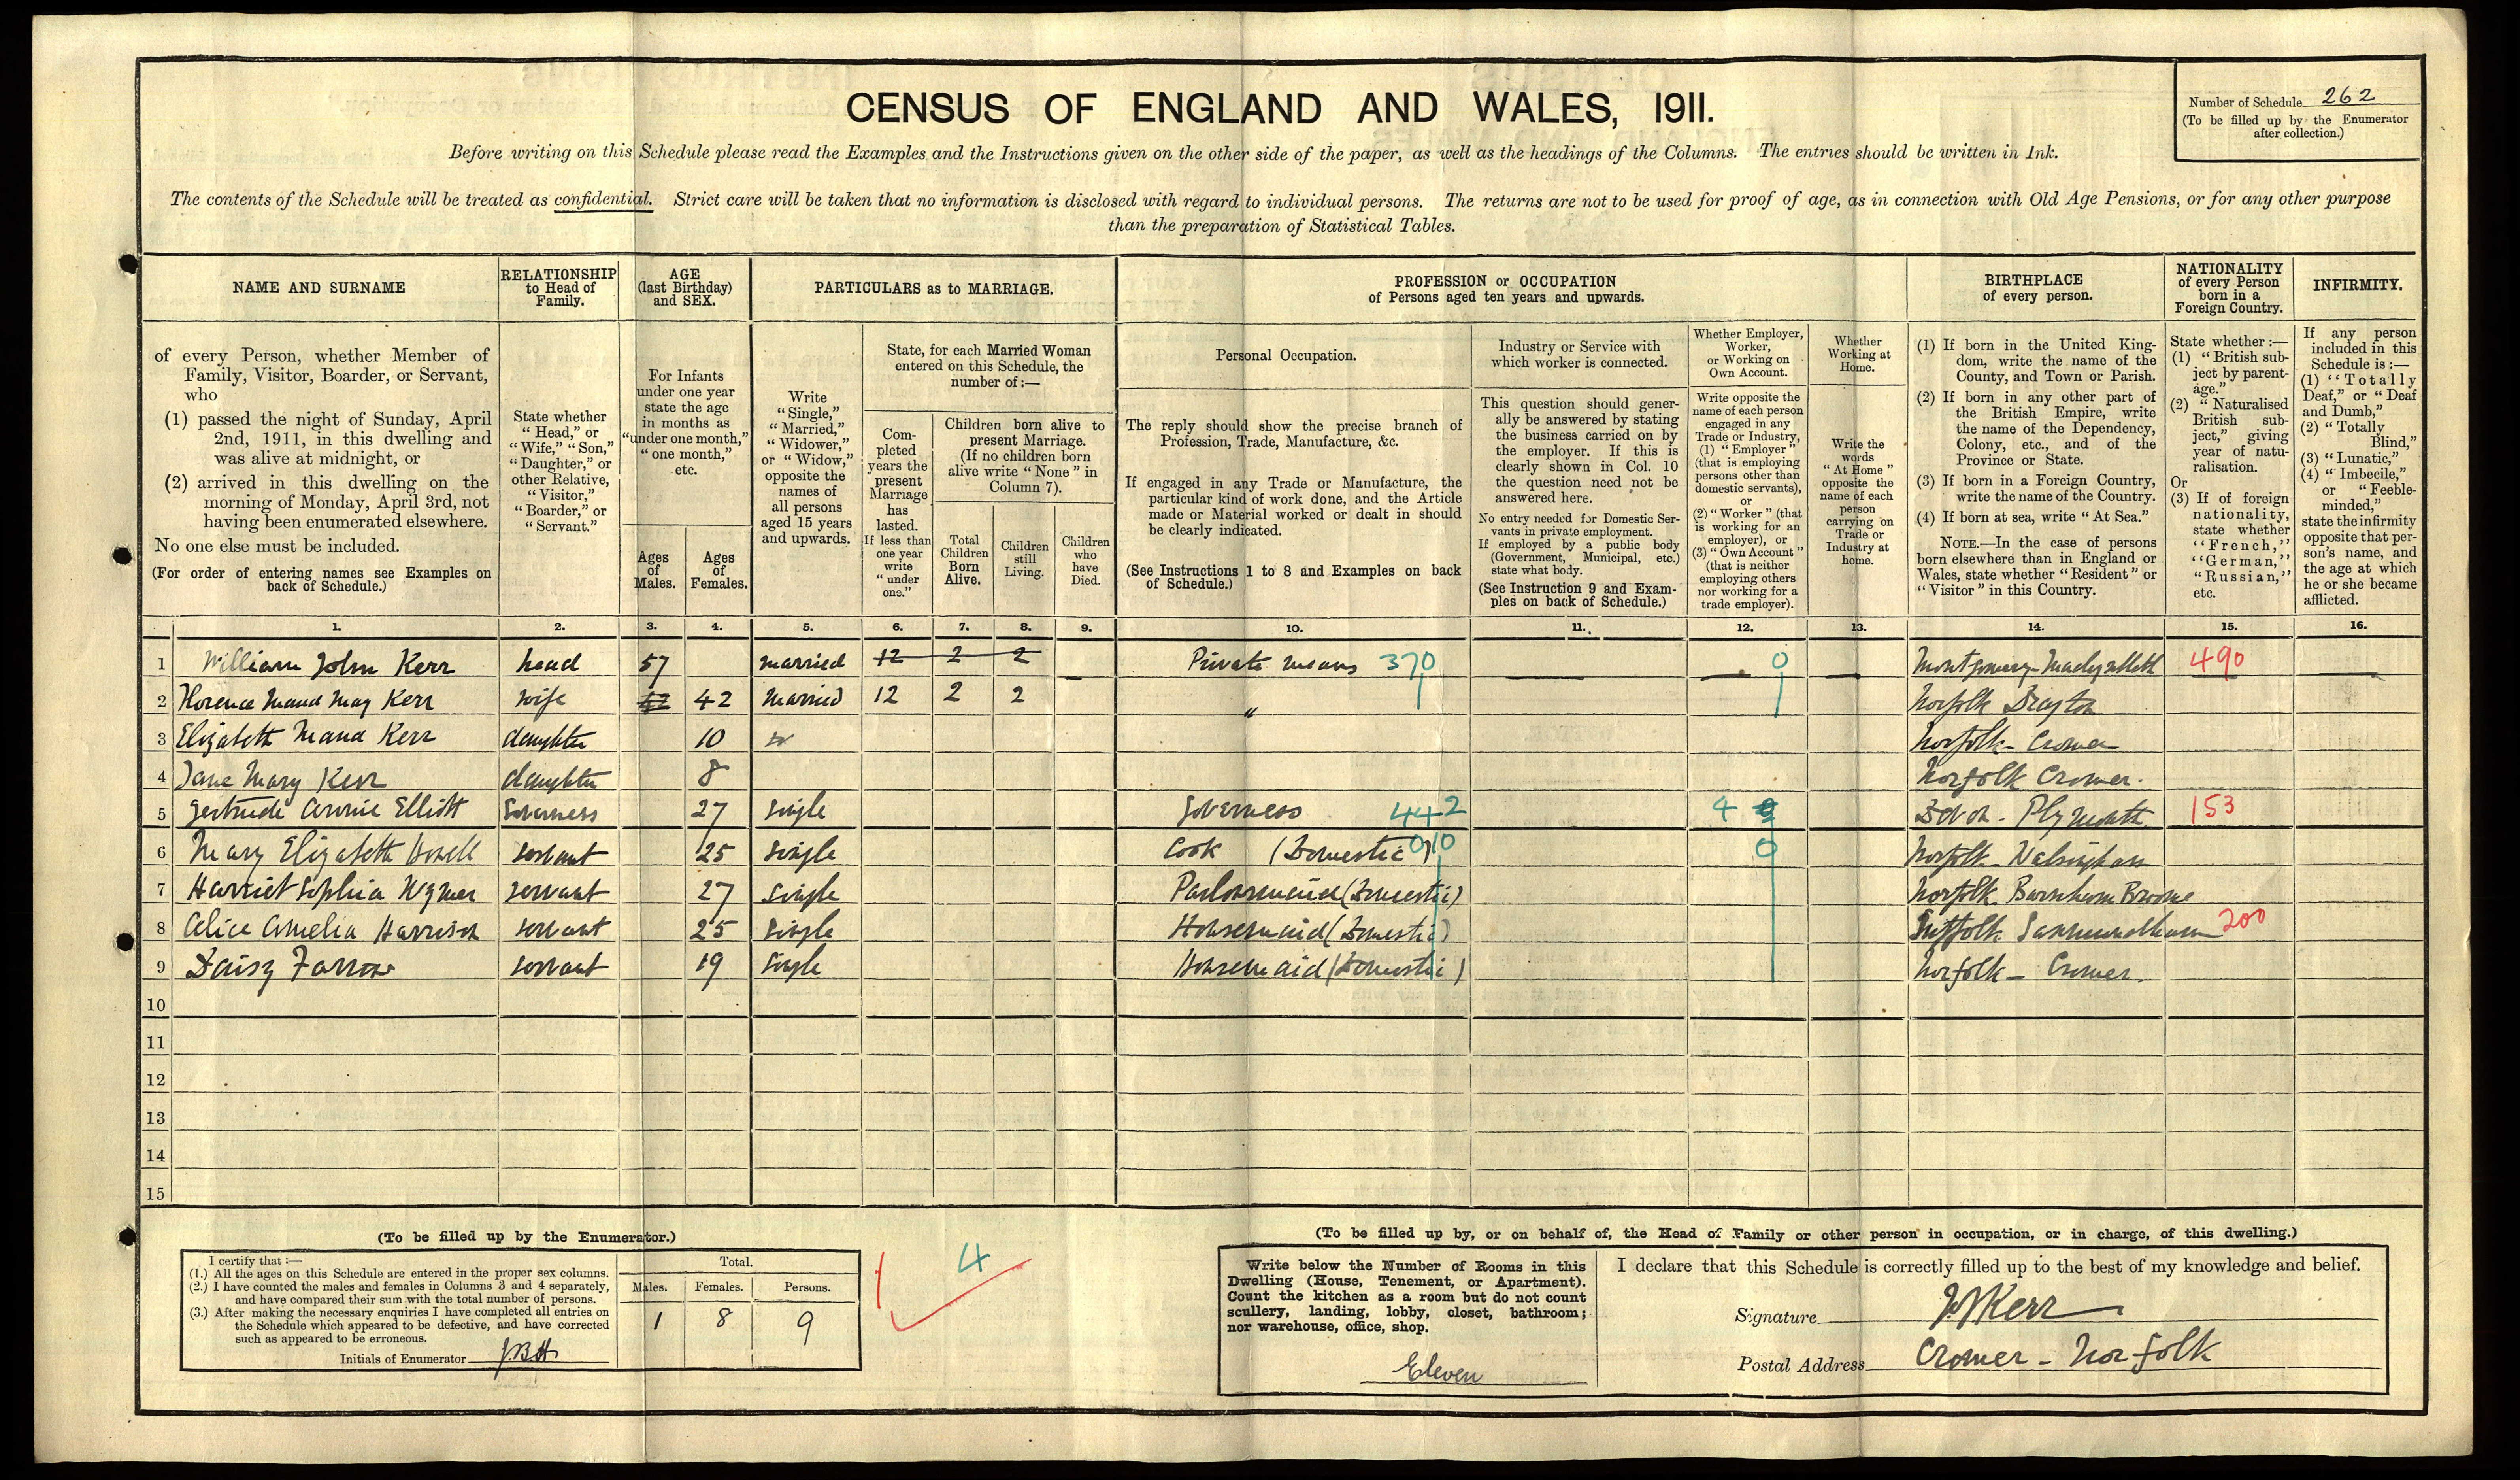 CENSUS OF ENGLAND AND WALES, 1911.
Number of Schedule 262
(To be filled up by the Enumerator
after collection.)
Before writing on this Schedule please read the Examples and the Instructions given on the other side of the paper, as well as the headings of the Columns. The entries should be written in Ink.
The contents of the Schedule will be treated as confidential. Strict care will be taken that no information is disclosed with regard to individual persons. The returns are not to be used for proof of age, as in connection with Old Age Pensions, or for any other purpose
than the preparation of Statistical Tables.
NAME AND SURNAME
of every Person, whether Member of
Family, Visitor, Boarder, or Servant,
who
(1) passed the night of Sunday, April
2nd, 1911, in this dwelling and
was alive at midnight, or
(2) arrived in this dwelling on the
morning of Monday, April 3rd, not
having been enumerated elsewhere.
No one else must be included.
(For order of entering names see Examples on
back of Schedule.)
RELATIONSHIP
to Head of
Family.
State whether
"Head," or
"Wife," "Son,"
"Daughter," or
other Relative,
"Visitor,"
"Boarder," or
"Servant."
AGE
(last Birthday)
and SEX.
For Infants
under one year
state the age
in months as
"under one month,"
"one month,"
etc.
Ages
of
Males.
Ages
of
Females.
PARTICULARS as to MARRIAGE.
Write
"Single,"
"Married,"
"Widower,"
or "Widow,"
opposite the
names of
all persons
aged 15 years
and upwards.
State, for each Married Woman
entered on this Schedule, the
number of:—
Com-
pleted
years the
present
Marriage
has
lasted.
If less than
one year
write
"under
one."
Children born alive to
present Marriage.
(If no children born
alive write "None" in
Column 7).
Total
Children
Born
Alive.
Children
still
Living.
Children
who
have
Died.
PROFESSION or OCCUPATION
of Persons aged ten years and upwards.
Personal Occupation.
The reply should show the precise branch of
Profession, Trade, Manufacture, &c.
If engaged in any Trade or Manufacture, the
particular kind of work done, and the Article
made or Material worked or dealt in should
be clearly indicated.
(See Instructions 1 to 8 and Examples on back
of Schedule.)
Industry or Service with
which worker is connected.
This question should gener-
ally be answered by stating
the business carried on by
the employer. If this is
clearly shown in Col. 10
the question need not be
answered here.
No entry needed for Domestic Ser-
vants in private employment.
If employed by a public body
(Government, Municipal, etc.)
state what body.
(See Instruction 9 and Exam-
ples on back of Schedule.)
Whether Employer,
Worker,
or Working on
Own Account.
Write opposite the
name of each person
engaged in any
Trade or Industry,
(1) "Employer"
(that is employing
persons other than
domestic servants),
or
(2) "Worker" (that
is working for an
employer), or
(3) "Own Account"
(that is neither
employing others
nor working for a
trade employer).
Whether
Working at
Home.
Write the
words
"At Home"
opposite the
name of each
person
carrying on
Trade or
Industry at
home.
BIRTHPLACE
of every person.
(1) If born in the United King-
dom, write the name of the
County, and Town or Parish.
(2) If born in any other part of
the British Empire, write
the name of the Dependency,
Colony, etc., and of the
Province or State.
(3) If born in a Foreign Country,
write the name of the Country.
(4) If born at sea, write "At Sea."
NOTE.—In the case of persons
born elsewhere than in England or
Wales, state whether "Resident" or
"Visitor" in this Country.
NATIONALITY
of every Person
born in a
Foreign Country.
State whether:—
(1) "British sub-
ject by parent-
age."
(2) "Naturalised
British sub-
ject," giving
year of natu-
ralisation.
Or
(3) If of foreign
nationality,
state whether
"French,"
"German,"
"Russian,"
etc.
INFIRMITY.
If any person
included in this
Schedule is:—
(1) "Totally
Deaf," or "Deaf
and Dumb,"
(2) "Totally
Blind,"
(3) "Lunatic,"
(4) "Imbecile,"
or "Feeble-
minded,"
state the infirmity
opposite that per-
son's name, and
the age at which
he or she became
afflicted.
1. 2. 3. 4. 5. 6. 7. 8. 9. 10. 11. 12. 13. 14. 15. 16.
1 William John Kerr head 57 married 12 2 2 Private means 370 0 Montgomery - Machynlleth 490
2 Florence Maud May Kerr wife 42 42 Married 12 2 2 " Norfolk Drayton
3 Elizabeth Maud Kerr daughter 10 Norfolk - Cromer
4 Jane Mary Kerr daughter 8 Norfolk Cromer.
5 Gertrude Annie Elliott Governess 27 Single Governess 442 4 Devon - Plymouth 153
6 Mary Elizabeth servant 25 Single Cook (Domestic) 010 0 Norfolk - Walsingham
7 Harriet Sophia Wymer servant 27 Single Parlourmaid (Domestic) Norfolk Barnham Broome
8 Alice Amelia Harrison servant 25 Single Housemaid (Domestic) Suffolk Saxmundham 200
9 Daisy Farrow servant 19 Single Housemaid (Domestic) Norfolk - Cromer.
10
11
12
13
14
15
(To be filled up by the Enumerator.)
I certify that:—
(1.) All the ages on this Schedule are entered in the proper sex columns.
(2.) I have counted the males and females in Columns 3 and 4 separately,
and have compared their sum with the total number of persons.
(3.) After making the necessary enquiries I have completed all entries on
the Schedule which appeared to be defective, and have corrected
such as appeared to be erroneous.
Initials of Enumerator JBH
Total.
Males. Females. Persons.
1 8 9
4
(To be filled up by, or on behalf of, the Head of Family or other person in occupation, or in charge, of this dwelling.)
Write below the Number of Rooms in this
Dwelling (House, Tenement, or Apartment).
Count the kitchen as a room but do not count
scullery, landing, lobby, closet, bathroom;
nor warehouse, office, shop.
Eleven
I declare that this Schedule is correctly filled up to the best of my knowledge and belief.
Signature WJKerr
Postal Address Cromer - Norfolk